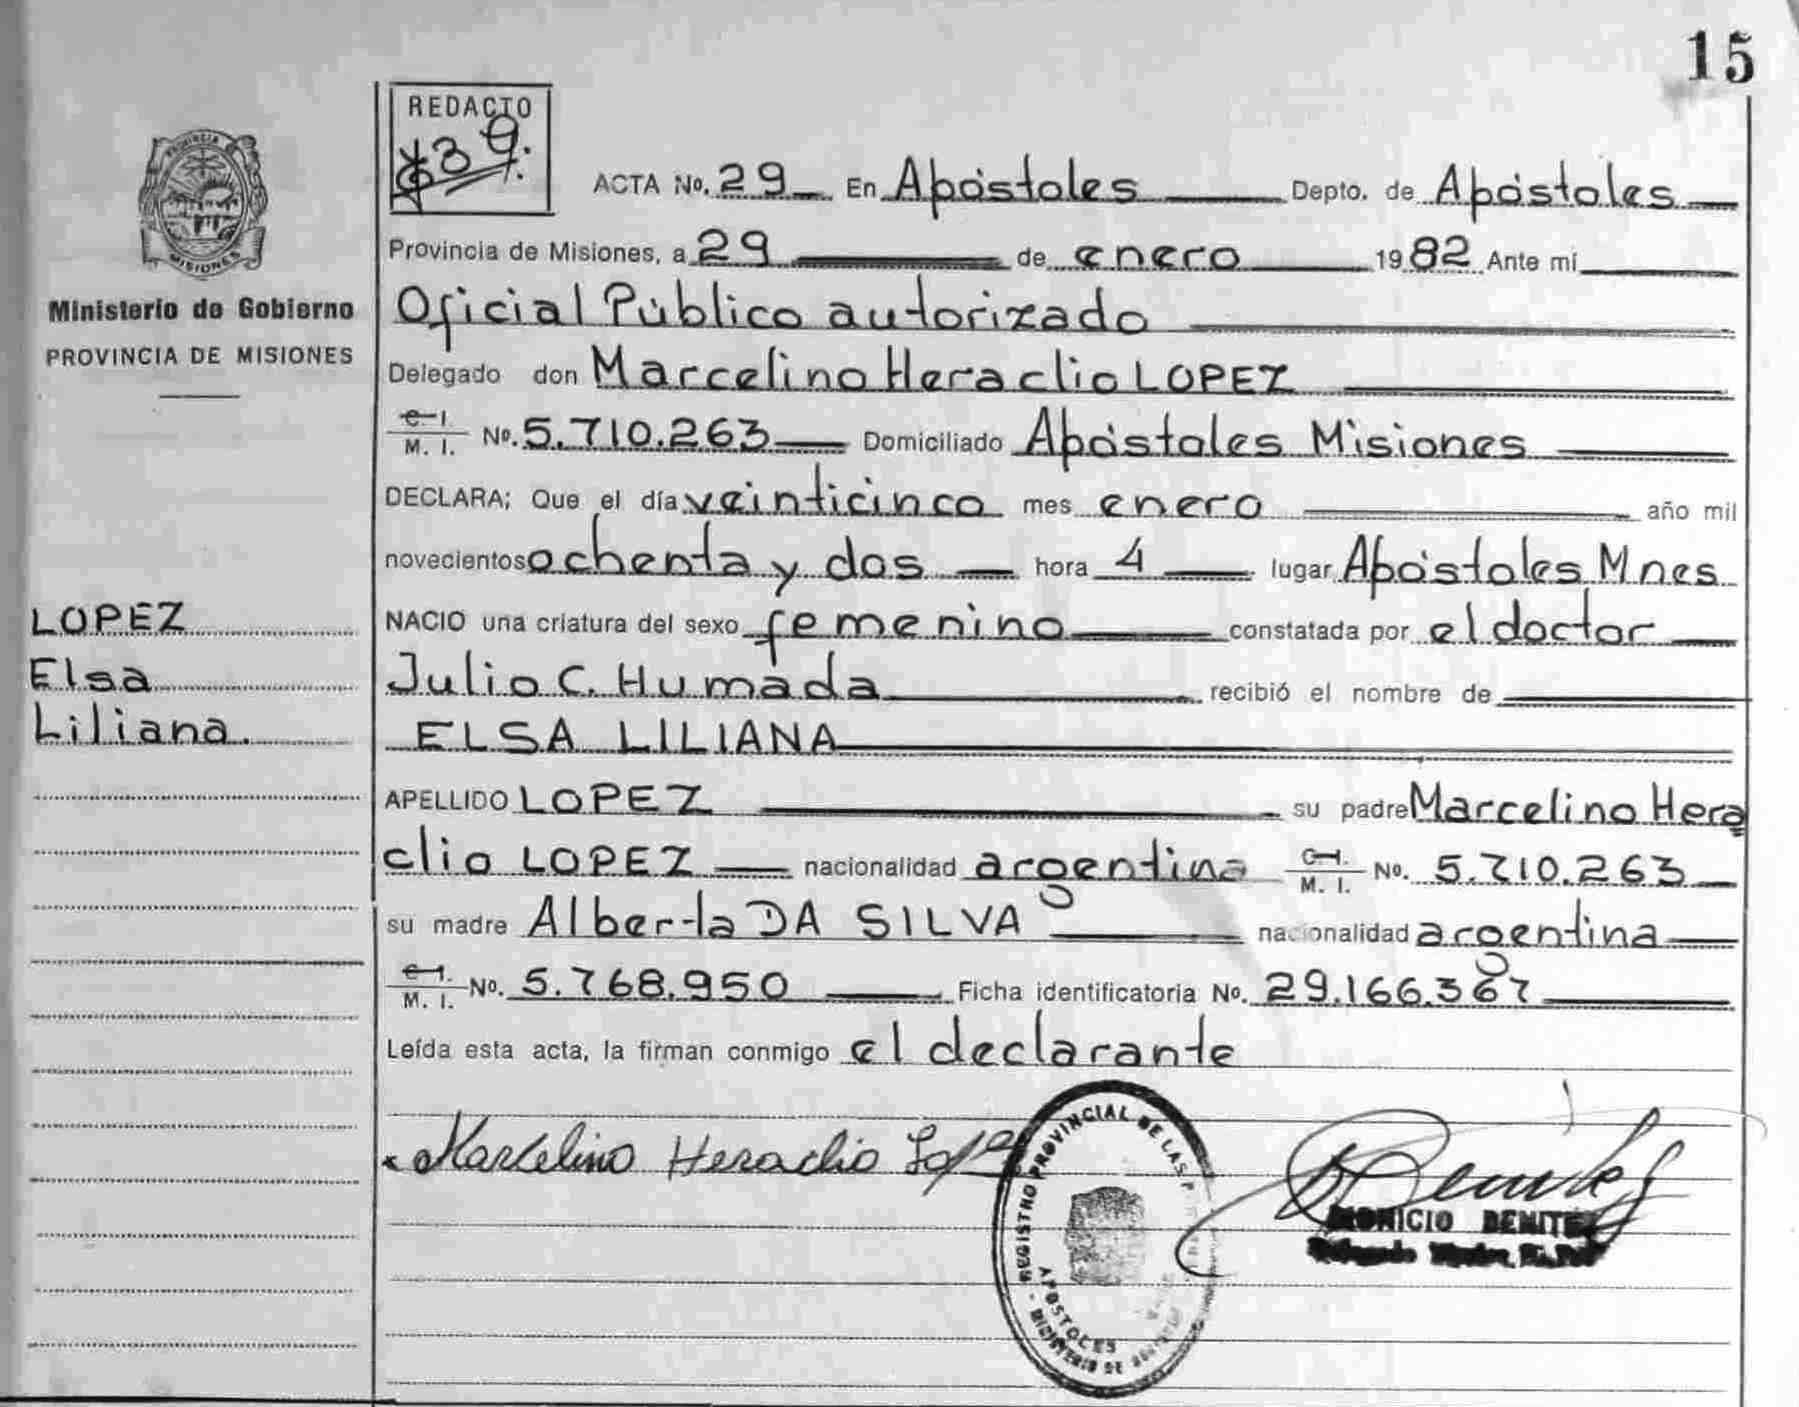 15
REDACTO
PROVINCIA
MISIONES
Ministerio de Gobierno
PROVINCIA DE MISIONES
ACTA No. 29 En Apóstoles Depto. de Apóstoles
Provincia de Misiones, a 29 de enero 1982 Ante mi
Oficial Público autorizado
Delegado don Marcelino Heraclio LOPEZ
C. I. M. I. No. 5.710.263 Domiciliado Apóstoles Misiones
DECLARA; Que el día veinticinco mes enero año mil
novecientos ochenta y dos hora 4 lugar Apóstoles Mnes
NACIO una criatura del sexo femenino constatada por el doctor
Julio C. Humada recibió el nombre de
ELSA LILIANA
APELLIDO LOPEZ su padre Marcelino Hera
clio LOPEZ nacionalidad argentina C. I. M. I. No. 5.710.263
su madre Alberta DA SILVA nacionalidad argentina
C. I. M. I. No. 5.768.950 Ficha identificatoria No. 29.166.367
Leída esta acta, la firman conmigo el declarante
LOPEZ
Elsa
Liliana.
Marcelino Heraclio Lopez
REGISTRO PROVINCIAL DE LAS P
APOSTOLES
MINISTERIO DE
DIONICIO BENITEZ